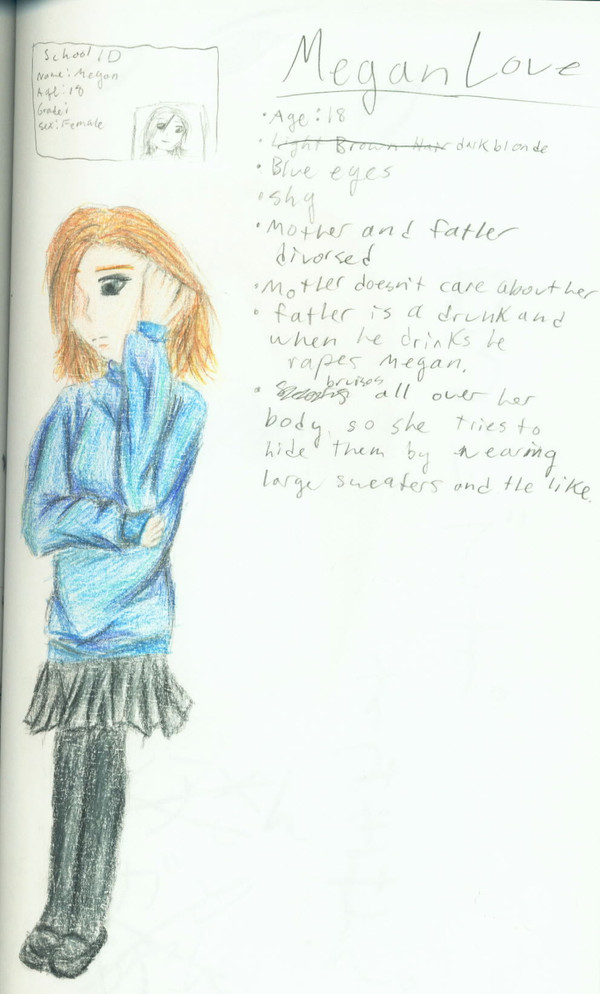 School ID
Name: Megan
Age: 18
Grade:
Sex: Female
Megan Love
• Age: 18
• Light Brown Hair dark blonde
• Blue eyes
• shy
• Mother and father
divorsed
• Mother doesn't care about her
• father is a drunk and
when he drinks he
rapes Megan.
• bruises all over her
body, so she tries to
hide them by wearing
large sweaters and the like.